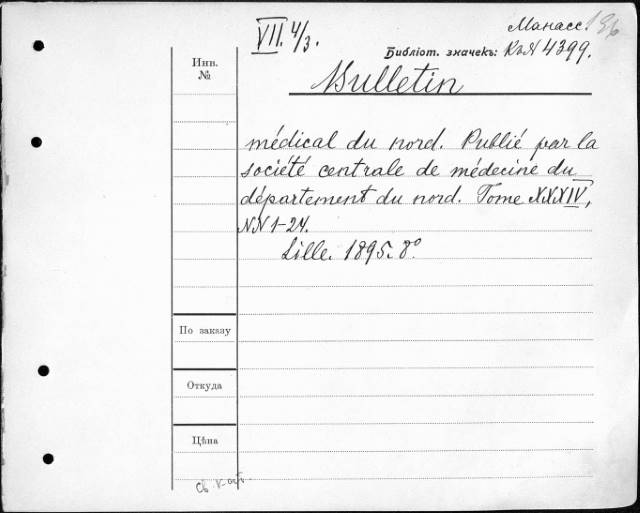 VII. 4/3.
Манасс. 136
Библіот. значекъ: Къ N 4399.
Инв. №
Bulletin
médical du nord. Publié par la
société centrale de médecine du
département du nord. Tome XXXIV,
NN 1-24.
Lille. 1895. 8°
По заказу
Откуда
Цѣна